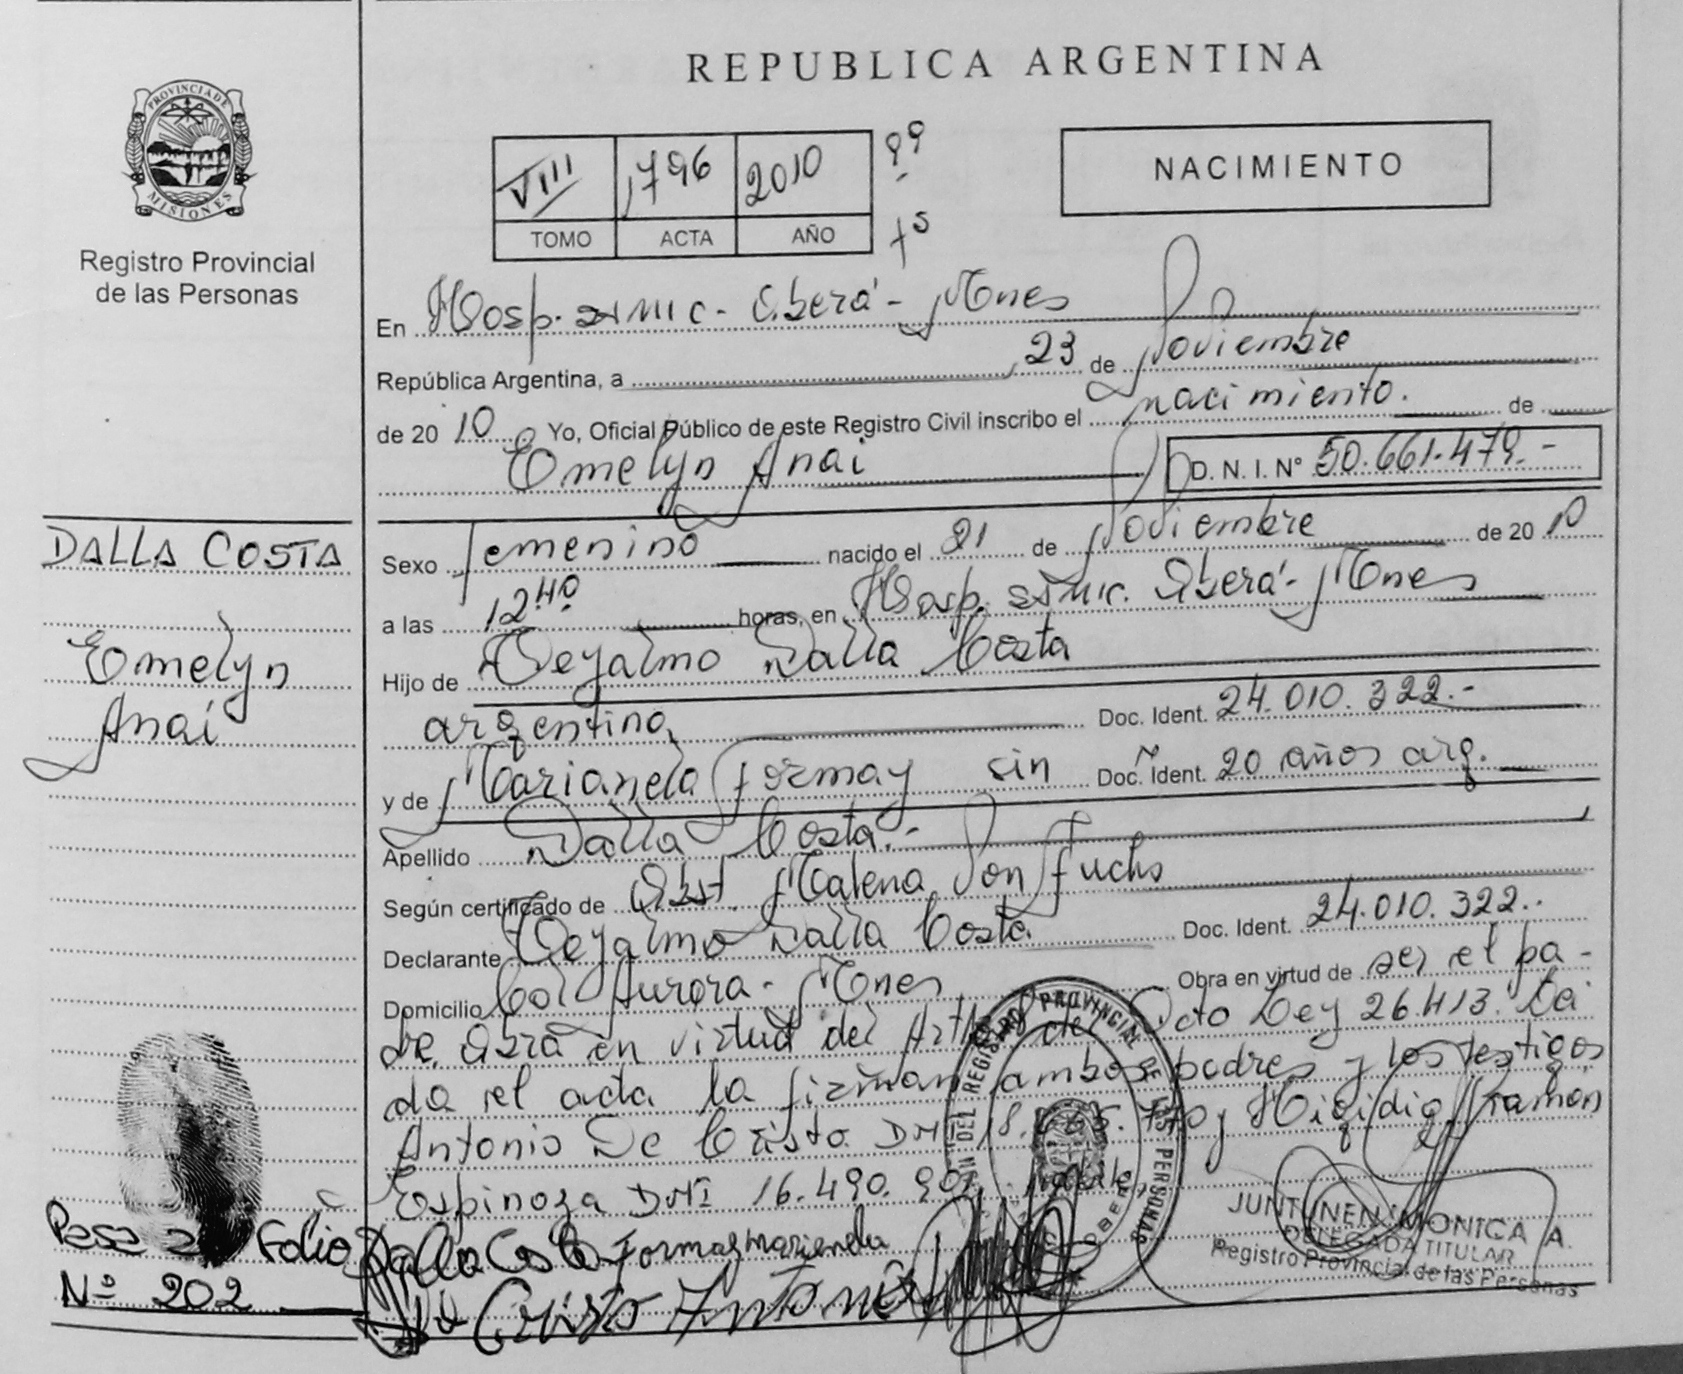 REPUBLICA ARGENTINA
PROVINCIA DE
MISIONES
Registro Provincial
de las Personas
VIII 1796 2010
TOMO ACTA AÑO
NACIMIENTO
En Hosp. Oberá - Mnes
República Argentina, a 23 de Noviembre
de 2010 Yo, Oficial Público de este Registro Civil inscribo el nacimiento. de
Emelyn Anai D. N. I. Nº 50.661.479.-
DALLA COSTA
Emelyn
Anai
Sexo femenino nacido el 21 de Noviembre de 2010
a las 12 40 horas, en Hosp. Oberá - Mnes
Hijo de Deyalmo Dalla Costa
argentino, Doc. Ident. 24.010.322.-
y de Marianela Formay sin Doc. Ident. 20 años arg.
Apellido Dalla Costa.-
Según certificado de Obst. Malena Von Fuchs
Declarante Deyalmo Dalla Costa Doc. Ident. 24.010.322..
Domicilio Col Aurora - Mnes Obra en virtud de ser el pa-
dre. Obra en virtud del Art del Dcto Ley 26.413. Lei
da el acta la firman ambos padres y los testigos
Antonio De Cristo DNI 18. y Higidio Ramon
Espinoza DNI 16.490.
Pasa al Folio
Nº 202
Dalla Costa Formay marianela
Cristo Antonio
REGISTRO PROVINCIAL DE LAS PERSONAS
JUNTUNEN MONICA A.
DELEGADA TITULAR
Registro Provincial de las Personas